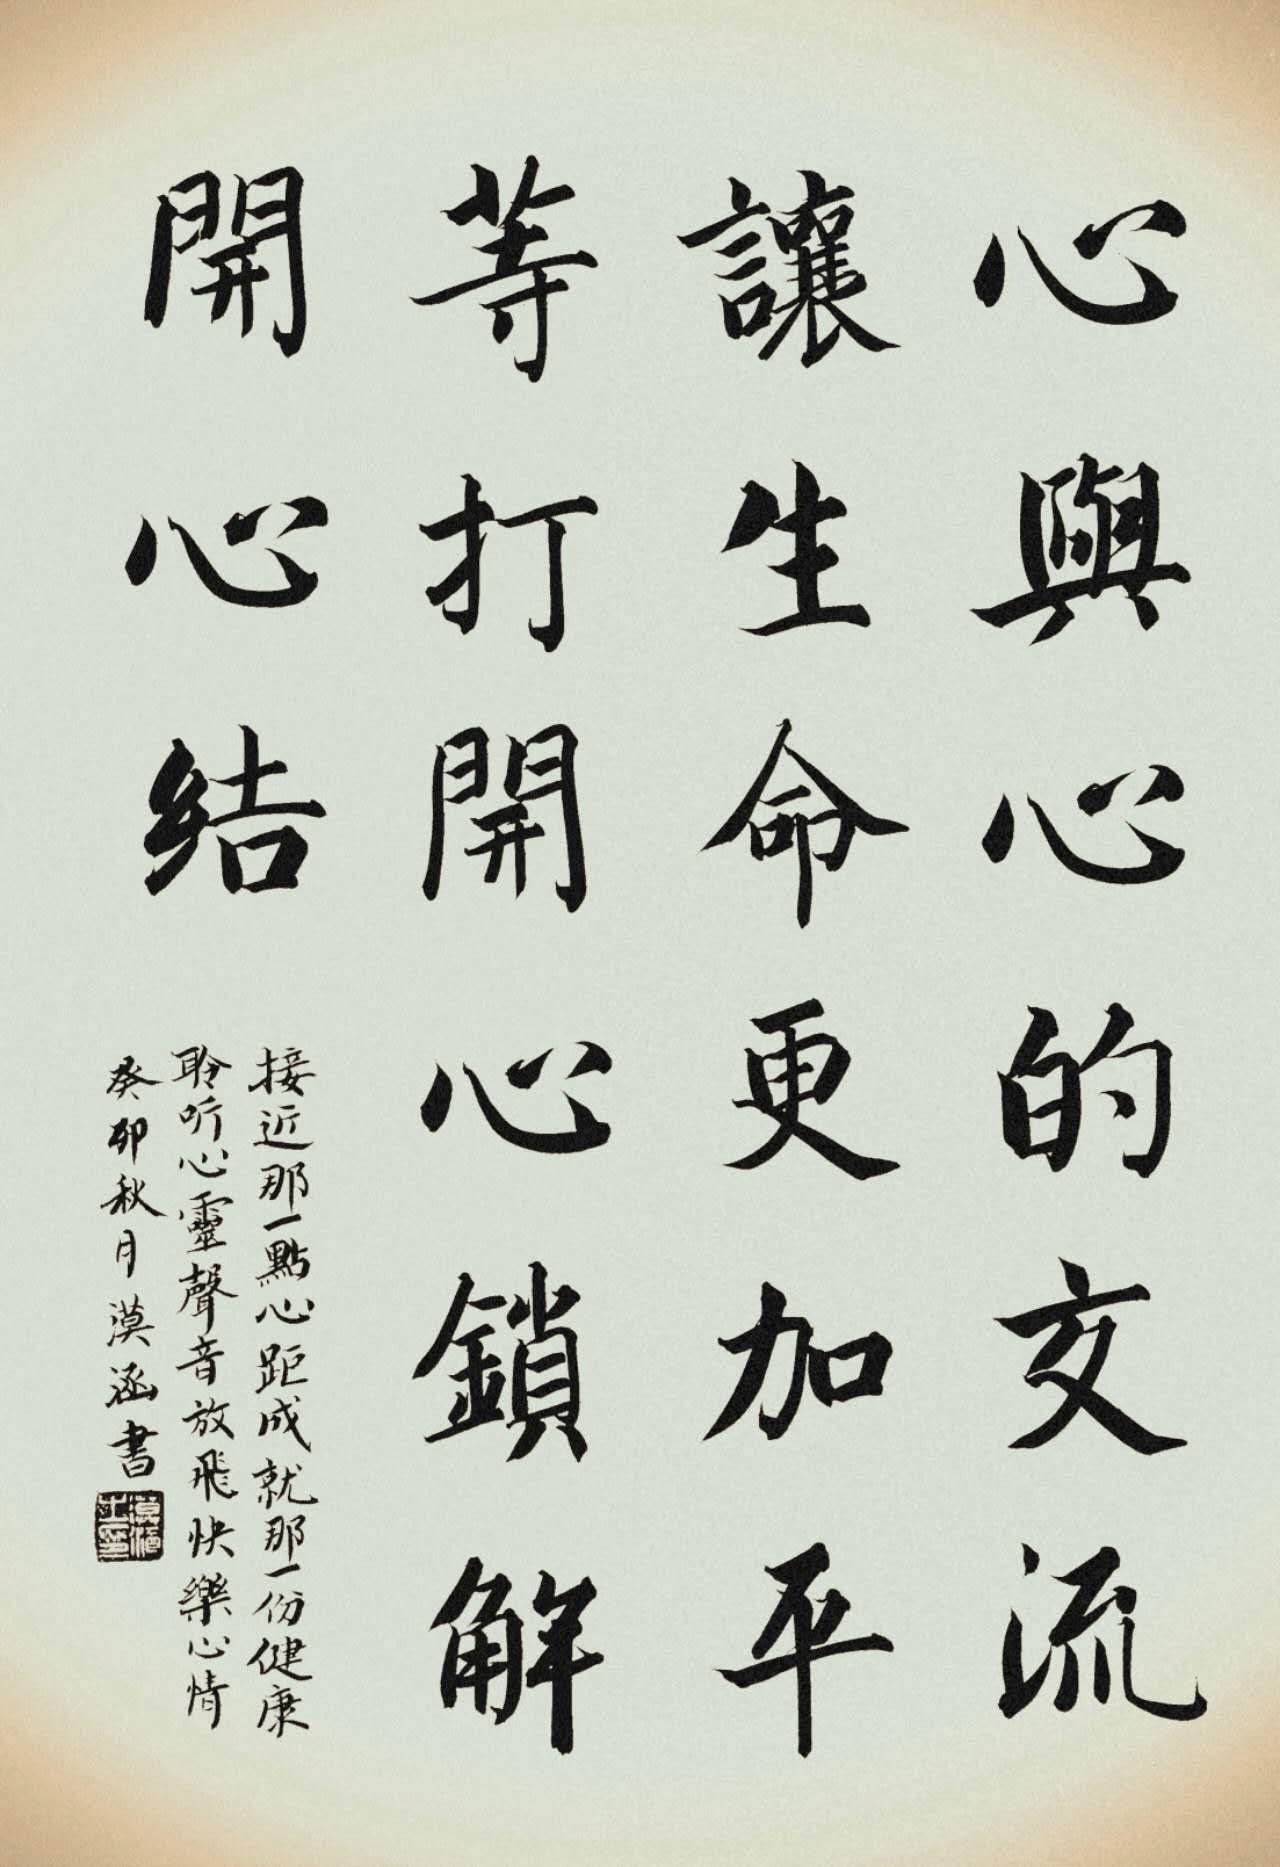 心與心的交流
讓生命更加平
等打開心鎖解
開心结
接近那一點心距成就那一份健康
聆听心靈聲音放飛快樂心情
癸卯秋月漠涵書